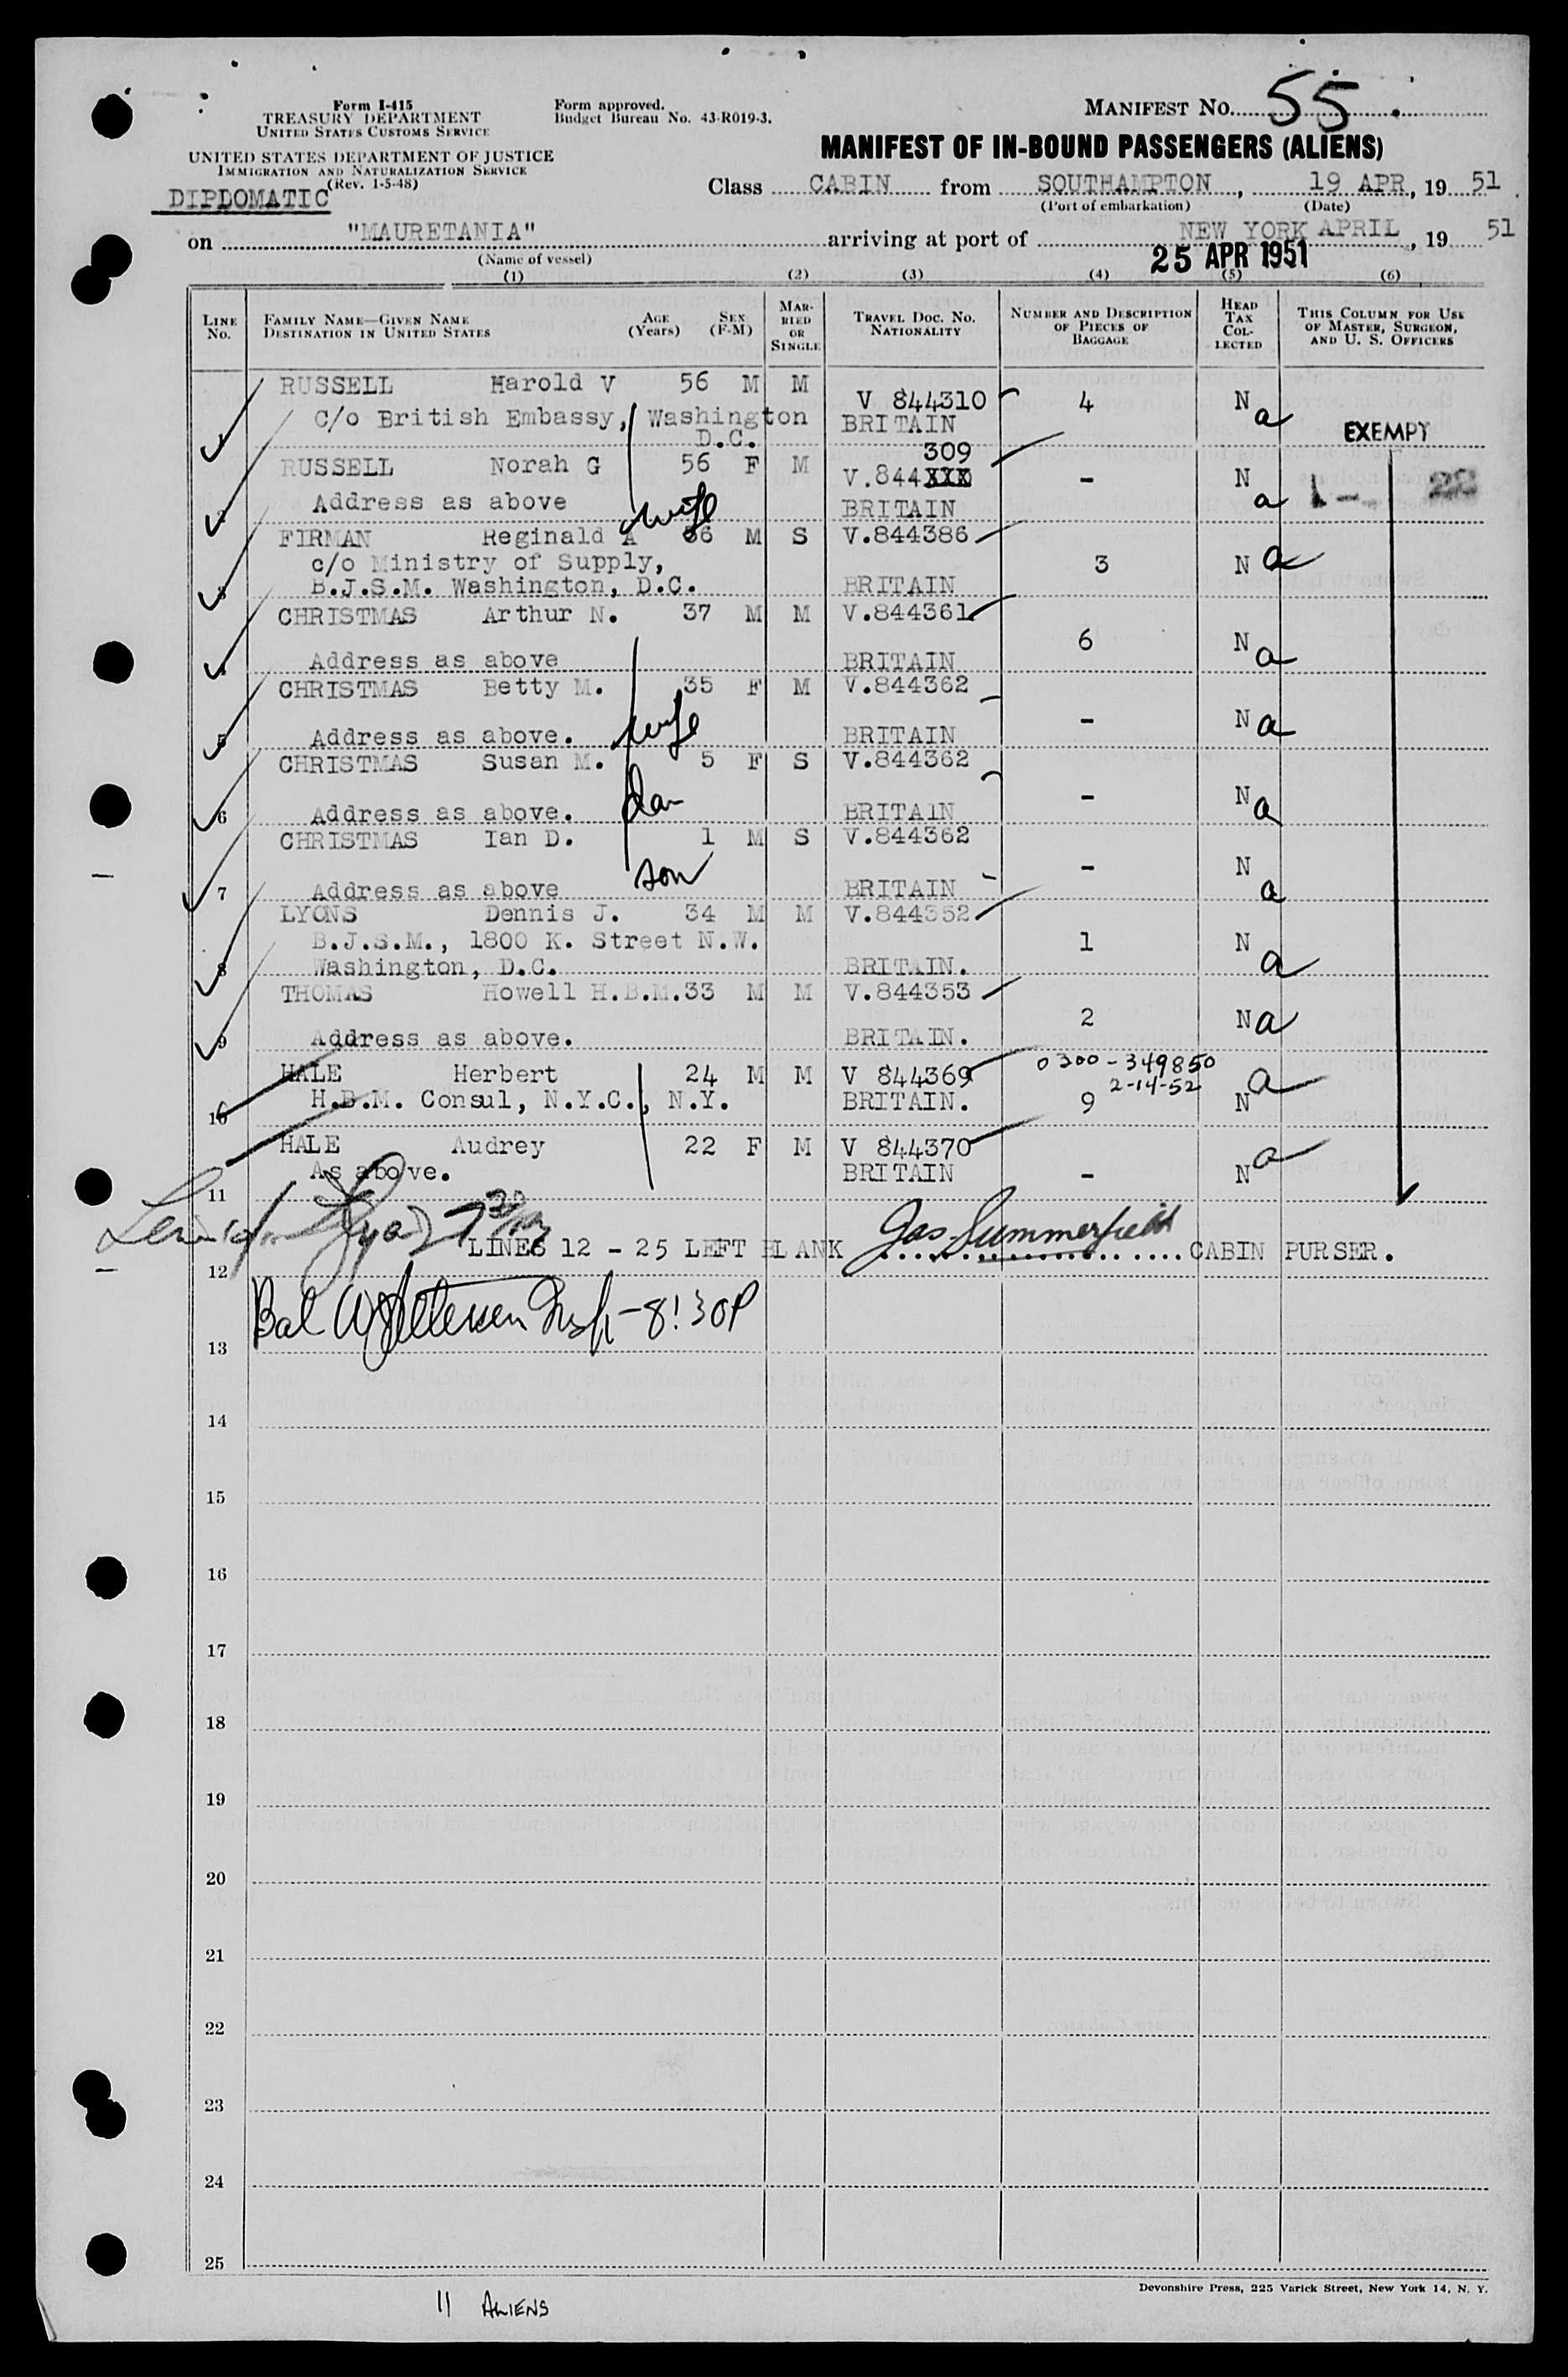 Form I-415
TREASURY DEPARTMENT
UNITED STATES CUSTOMS SERVICE
Form approved.
Budget Bureau No. 43-R019-3.
MANIFEST NO. 55.
UNITED STATES DEPARTMENT OF JUSTICE
IMMIGRATION AND NATURALIZATION SERVICE
(Rev. 1-5-48)
DIPLOMATIC
MANIFEST OF IN-BOUND PASSENGERS (ALIENS)
Class CABIN from SOUTHAMPTON, 19 APR, 19 51.
(Port of embarkation) (Date)
on "MAURETANIA" arriving at port of NEW YORK APRIL, 19 51
(Name of vessel) 25 APR 1951
(1) (2) (3) (4) (5) (6)
LINE NO. FAMILY NAME—GIVEN NAME DESTINATION IN UNITED STATES AGE (Years) SEX (F-M) MARRIED OR SINGLE TRAVEL DOC. NO. NATIONALITY NUMBER AND DESCRIPTION OF PIECES OF BAGGAGE HEAD TAX COLLECTED THIS COLUMN FOR USE OF MASTER, SURGEON, AND U. S. OFFICERS
RUSSELL Harold V 56 M M V 844310 4 N a
C/o British Embassy, Washington D.C. BRITAIN EXEMPT
RUSSELL Norah G 56 F M V.844XXX 309 - N a
Address as above wife BRITAIN
FIRMAN Reginald A 36 M S V.844386 3 N a
c/o Ministry of Supply,
B.J.S.M. Washington, D.C. BRITAIN
CHRISTMAS Arthur N. 37 M M V.844361 6 N a
Address as above BRITAIN
CHRISTMAS Betty M. 35 F M V.844362 - N a
5 Address as above. wife BRITAIN
CHRISTMAS Susan M. 5 F S V.844362 - N a
6 Address as above. dau BRITAIN
CHRISTMAS Ian D. 1 M S V.844362 - N a
7 Address as above son BRITAIN
LYONS Dennis J. 34 M M V.844352 1 N a
B.J.S.M., 1800 K. Street N.W.
8 Washington, D.C. BRITAIN.
THOMAS Howell H.B.M. 33 M M V.844353 2 N a
9 Address as above. BRITAIN.
HALE Herbert 24 M M V 844369 0300-349850
10 H.B.M. Consul, N.Y.C., N.Y. BRITAIN. 9 2-14-52 N a
HALE Audrey 22 F M V 844370 - N a
As above. BRITAIN
11
LINES 12 - 25 LEFT BLANK Jas Summerfield CABIN PURSER.
12
Bal 8:30P
13
14
15
16
17
18
19
20
21
22
23
24
25
Devonshire Press, 225 Varick Street, New York 14, N. Y.
11 ALIENS